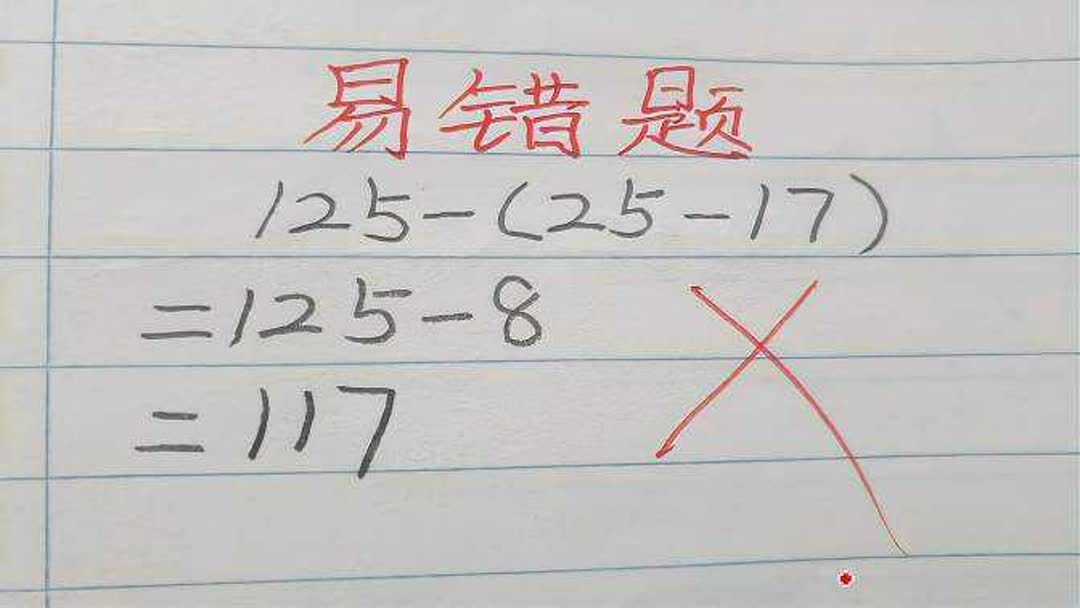 易错题
125-(25-17)
=125-8
=117